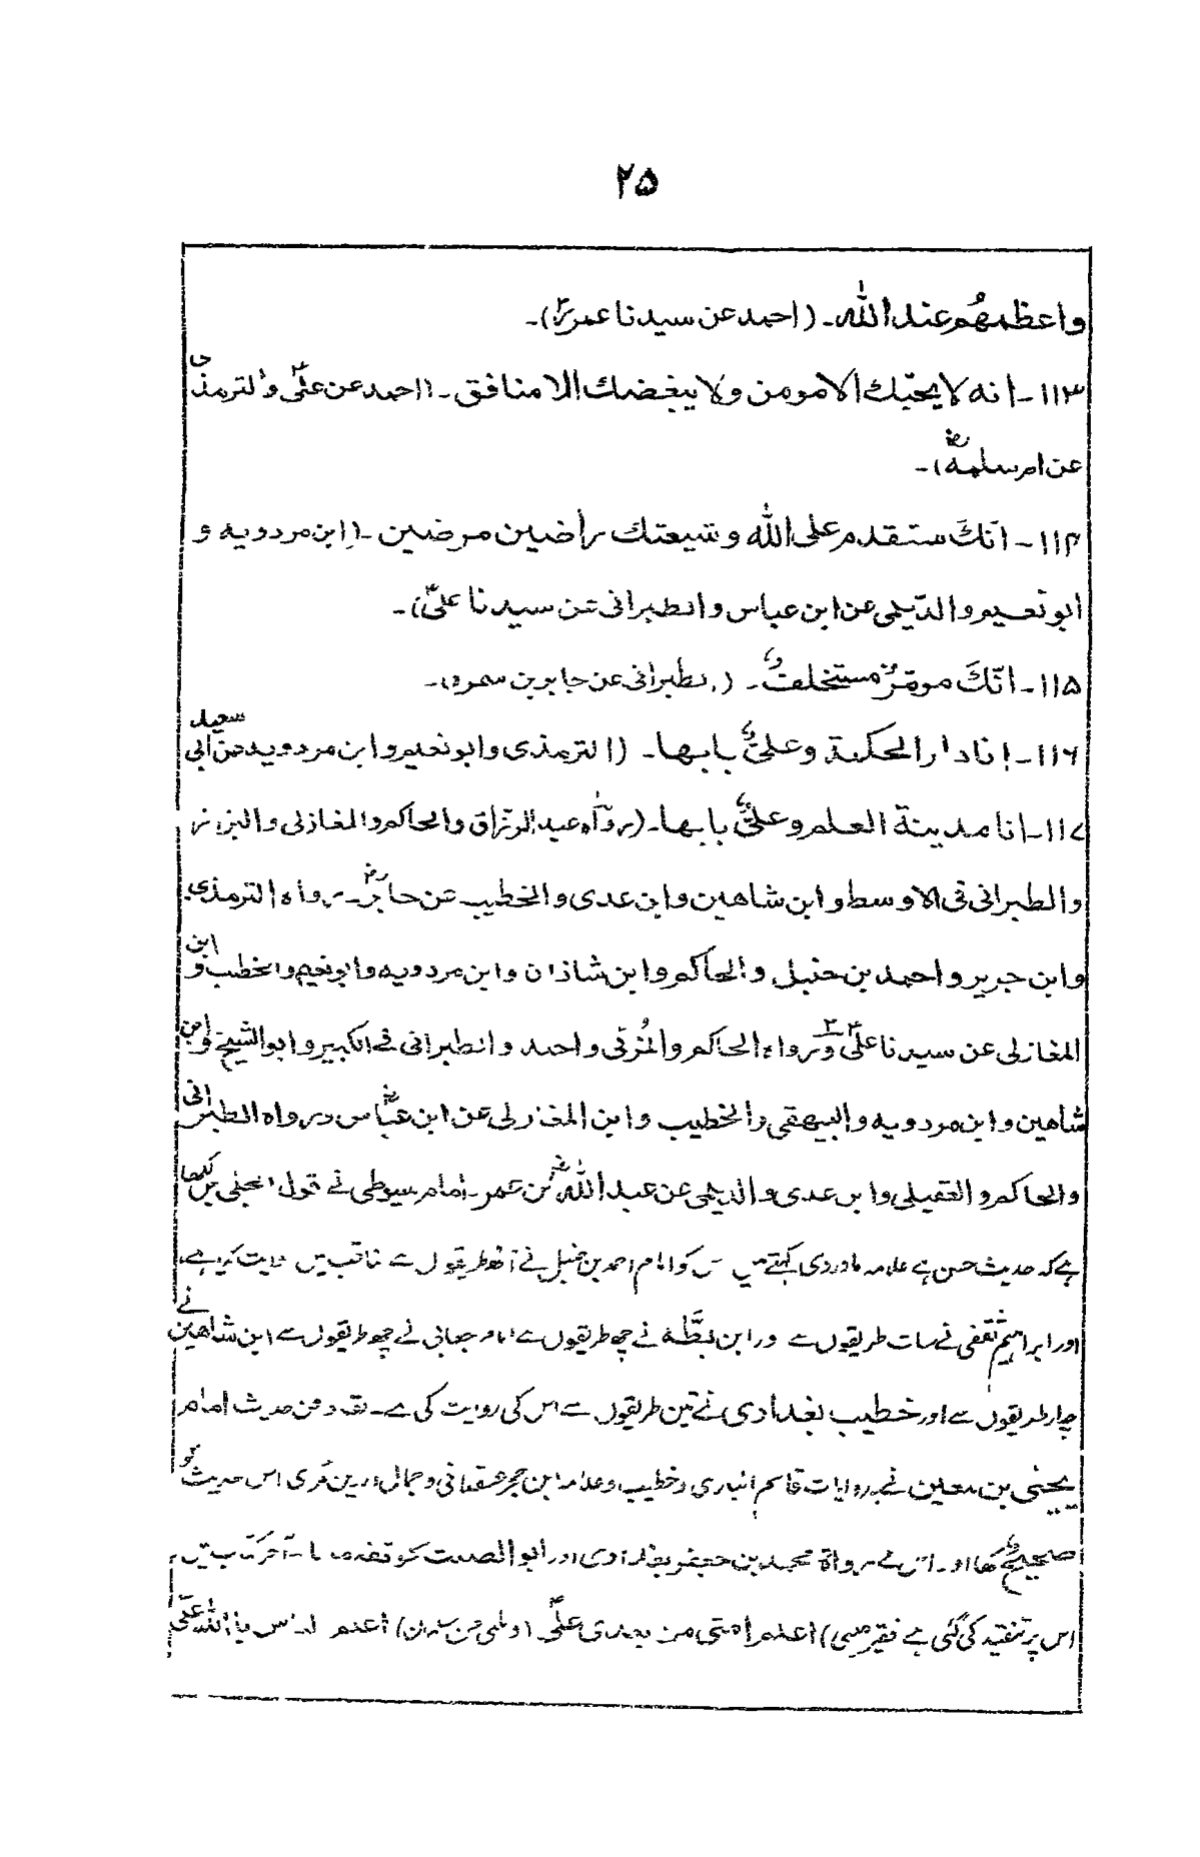 ۲۵
واعظمهُم عند اللّٰه۔ (احمد عن سیدنا عمرؓ)۔
۱۱۳۔ انه لا یحبّك الا مومن ولا یبغضك الا منافق۔ (احمد عن علیؓ والترمذی
عن ام سلمةؓ)۔
۱۱۴۔ انّكَ ستقدم علی اللّٰه وشیعتك راضین مرضین۔ (ابن مردویه و
ابو نعیم والدّیلمی عن ابن عباس والطبرانی عن سیدنا علیؓ)۔
۱۱۵۔ انّكَ مومّرٌ مستخلفٌ۔ (طبرانی عن جابر بن سمره)۔
۱۱۶۔ انا دار الحکمة وعلیٌّ بابها۔ (الترمذی وابو نعیم وابن مردویه عن ابی سعید
۱۱۷۔ انا مدینة العلم وعلیٌّ بابها۔ (رواه عبد الرزاق والحاکم والمغازلی والبزار
والطبرانی فی الاوسط وابن شاهین وابن عدی والخطیب عن جابرؓ۔ رواه الترمذی
وابن جریر واحمد بن حنبل والحاکم وابن شاذان وابن مردویه وابو نعیم والخطیب وابن
المغازلی عن سیدنا علیؓ ورواه الحاکم والمُزنی واحمد والطبرانی فی الکبیر وابو الشیخ وابن
شاهین وابن مردویه والبیهقی والخطیب وابن المغازلی عن ابن عبّاسؓ ورواه الطبرانی
والحاکم والعقیلی وابن عدی والدیلمی عن عبد اللّٰهؓ بن عمر۔ امام سیوطی نے قول میں کہا
ہے کہ حدیث حسن ہے علامہ ماوردی کہتے ہیں اس کو امام احمد بن حنبل نے آٹھ طریقوں سے مناقب میں روایت کیا ہے،
اور ابراہیم ثقفی نے سات طریقوں سے اور ابن بطّہ نے چھ طریقوں سے امام جعابی نے چھ طریقوں سے ابن شاہین نے
چار طریقوں سے اور خطیب بغدادی نے تین طریقوں سے اس کی روایت کی ہے۔ نقاد من حدیث امام
یحیٰی بن معین نے بروایات قاسم انباری وخطیب وعلامہ ابن حجر عسقلانی وجمال الدین مُزی اس حدیث کو
صحیح کہا اور اس کے رواة محمد بن جعفر بغدادی اور ابو الصلت کو ثقہ آخر کتاب میں
اس پر تنقید کی گئی ہے فقیر) اعلم امتی من بعدی علیؓ (دیلمی عن سلمان) اعلم الناس باللّٰه علیؓ